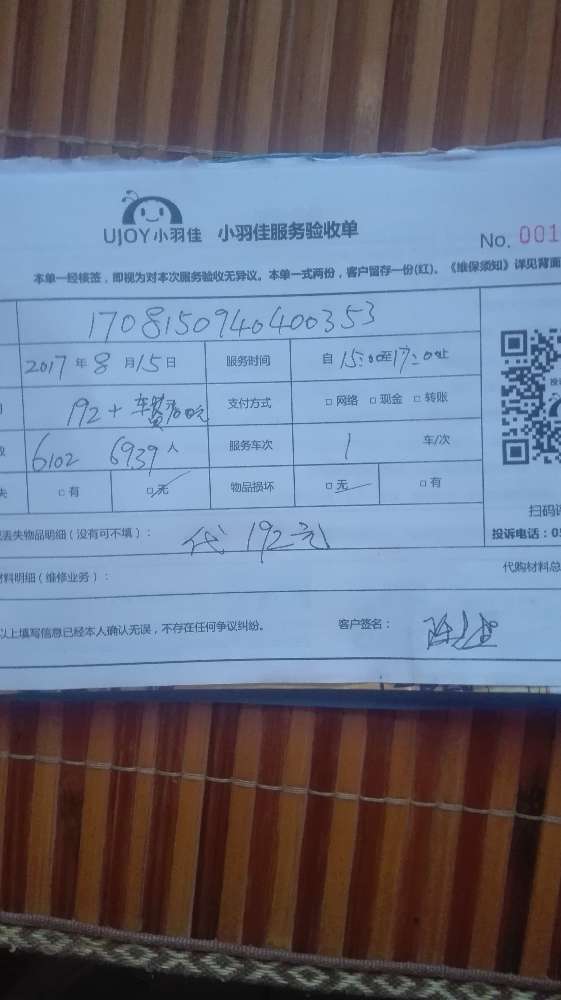 UJOY小羽佳 小羽佳服务验收单
No. 001
本单一经核签，即视为对本次服务验收无异议。本单一式两份，客户留存一份(红)。《维保须知》详见背面
1708150940400353
2017年8月15日 服务时间 自15:00至17:00止
192+车费 元 支付方式 □网络 □现金 □转账
6102 6939人 服务车次 1 车/次
失 □有 □无 物品损坏 □无 □有
丢失物品明细（没有可不填）： 代192元
扫码
投诉电话：0
材料明细（维修业务）： 代购材料总
以上填写信息已经本人确认无误，不存在任何争议纠纷。 客户签名：